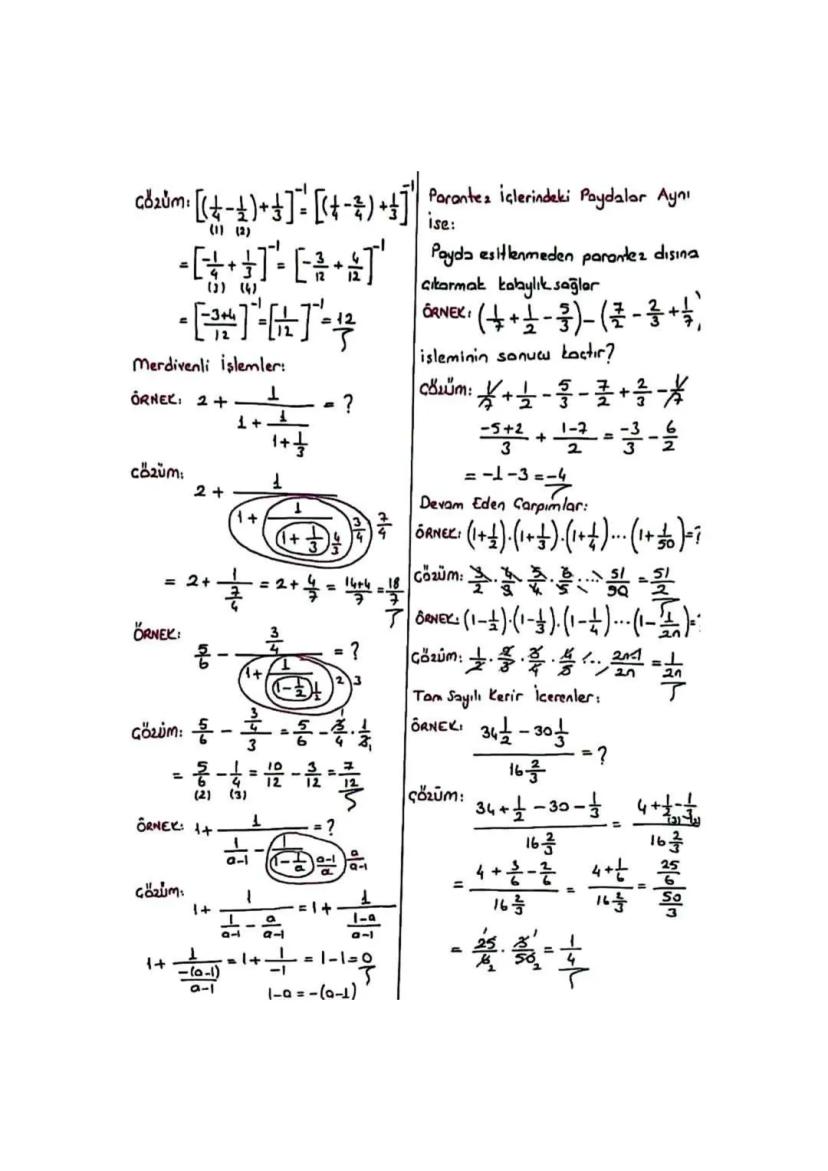 Çözüm: [(1/4 - 1/2) + 1/3]^-1 = [(1/4 - 2/4) + 1/3]^-1
(1) (2)
= [-1/4 + 1/3]^-1 = [-3/12 + 4/12]^-1
(3) (4)
= [-3+4/12]^-1 = [1/12]^-1 = 12
Merdivenli İşlemler:
ÖRNEK: 2 + 1/(1 + 1/(1 + 1/3)) = ?
Çözüm:
2 + 1/(1 + 1/(1 + 1/3)) 4/3 3/4 7/4
= 2 + 1/(7/4) = 2 + 4/7 = 14+4/7 = 18/7
ÖRNEK:
5/6 - (3/4)/(1 + 1/(1 - 1/2)) = ? 1/2 2 3
Çözüm: 5/6 - (3/4)/3 = 5/6 - 3/4 . 1/3
= 5/6 - 1/4 = 10/12 - 3/12 = 7/12
(2) (3)
ÖRNEK: 1 + 1/(1/(a-1) - 1/(1 - 1/a)) = ? a-1/a a/a-1
Çözüm:
1 + 1/(1/(a-1) - a/(a-1)) = 1 + 1/((1-a)/(a-1))
1 + 1/(-(a-1)/(a-1)) = 1 + 1/-1 = 1-1=0
1-a = -(a-1)
Parantez İçlerindeki Paydalar Aynı
ise:
Payda esitlenmeden parantez dısına
cıkarmak kolaylık sağlar
ÖRNEK: (1/7 + 1/2 - 5/3) - (7/2 - 2/3 + 1/7)
işleminin sonucu kaçtır?
Çözüm: 1/7 + 1/2 - 5/3 - 7/2 + 2/3 - 1/7
-5+2/3 + 1-7/2 = -3/3 - 6/2
= -1 -3 = -4
Devam Eden Çarpımlar:
ÖRNEK: (1+1/2).(1+1/3).(1+1/4)...(1+1/50)=?
Çözüm: 3/2 . 4/3 . 5/4 . 6/5 ... 51/50 = 51/2
ÖRNEK: (1-1/2).(1-1/3).(1-1/4)...(1-1/2n)=?
Çözüm: 1/2 . 2/3 . 3/4 . 4/5 ... 2n-1/2n = 1/2n
Tam Sayılı Kerir İcerenler:
ÖRNEK:
(34 1/2 - 30 1/3)/(16 2/3) = ?
Çözüm:
(34 + 1/2 - 30 - 1/3)/(16 2/3) = (4 + 1/2 - 1/3)/(16 2/3)
(3) (2)
= (4 + 3/6 - 2/6)/(16 2/3) = (4 + 1/6)/(16 2/3) = (25/6)/(50/3)
= 25/6 . 3/50 = 1/4